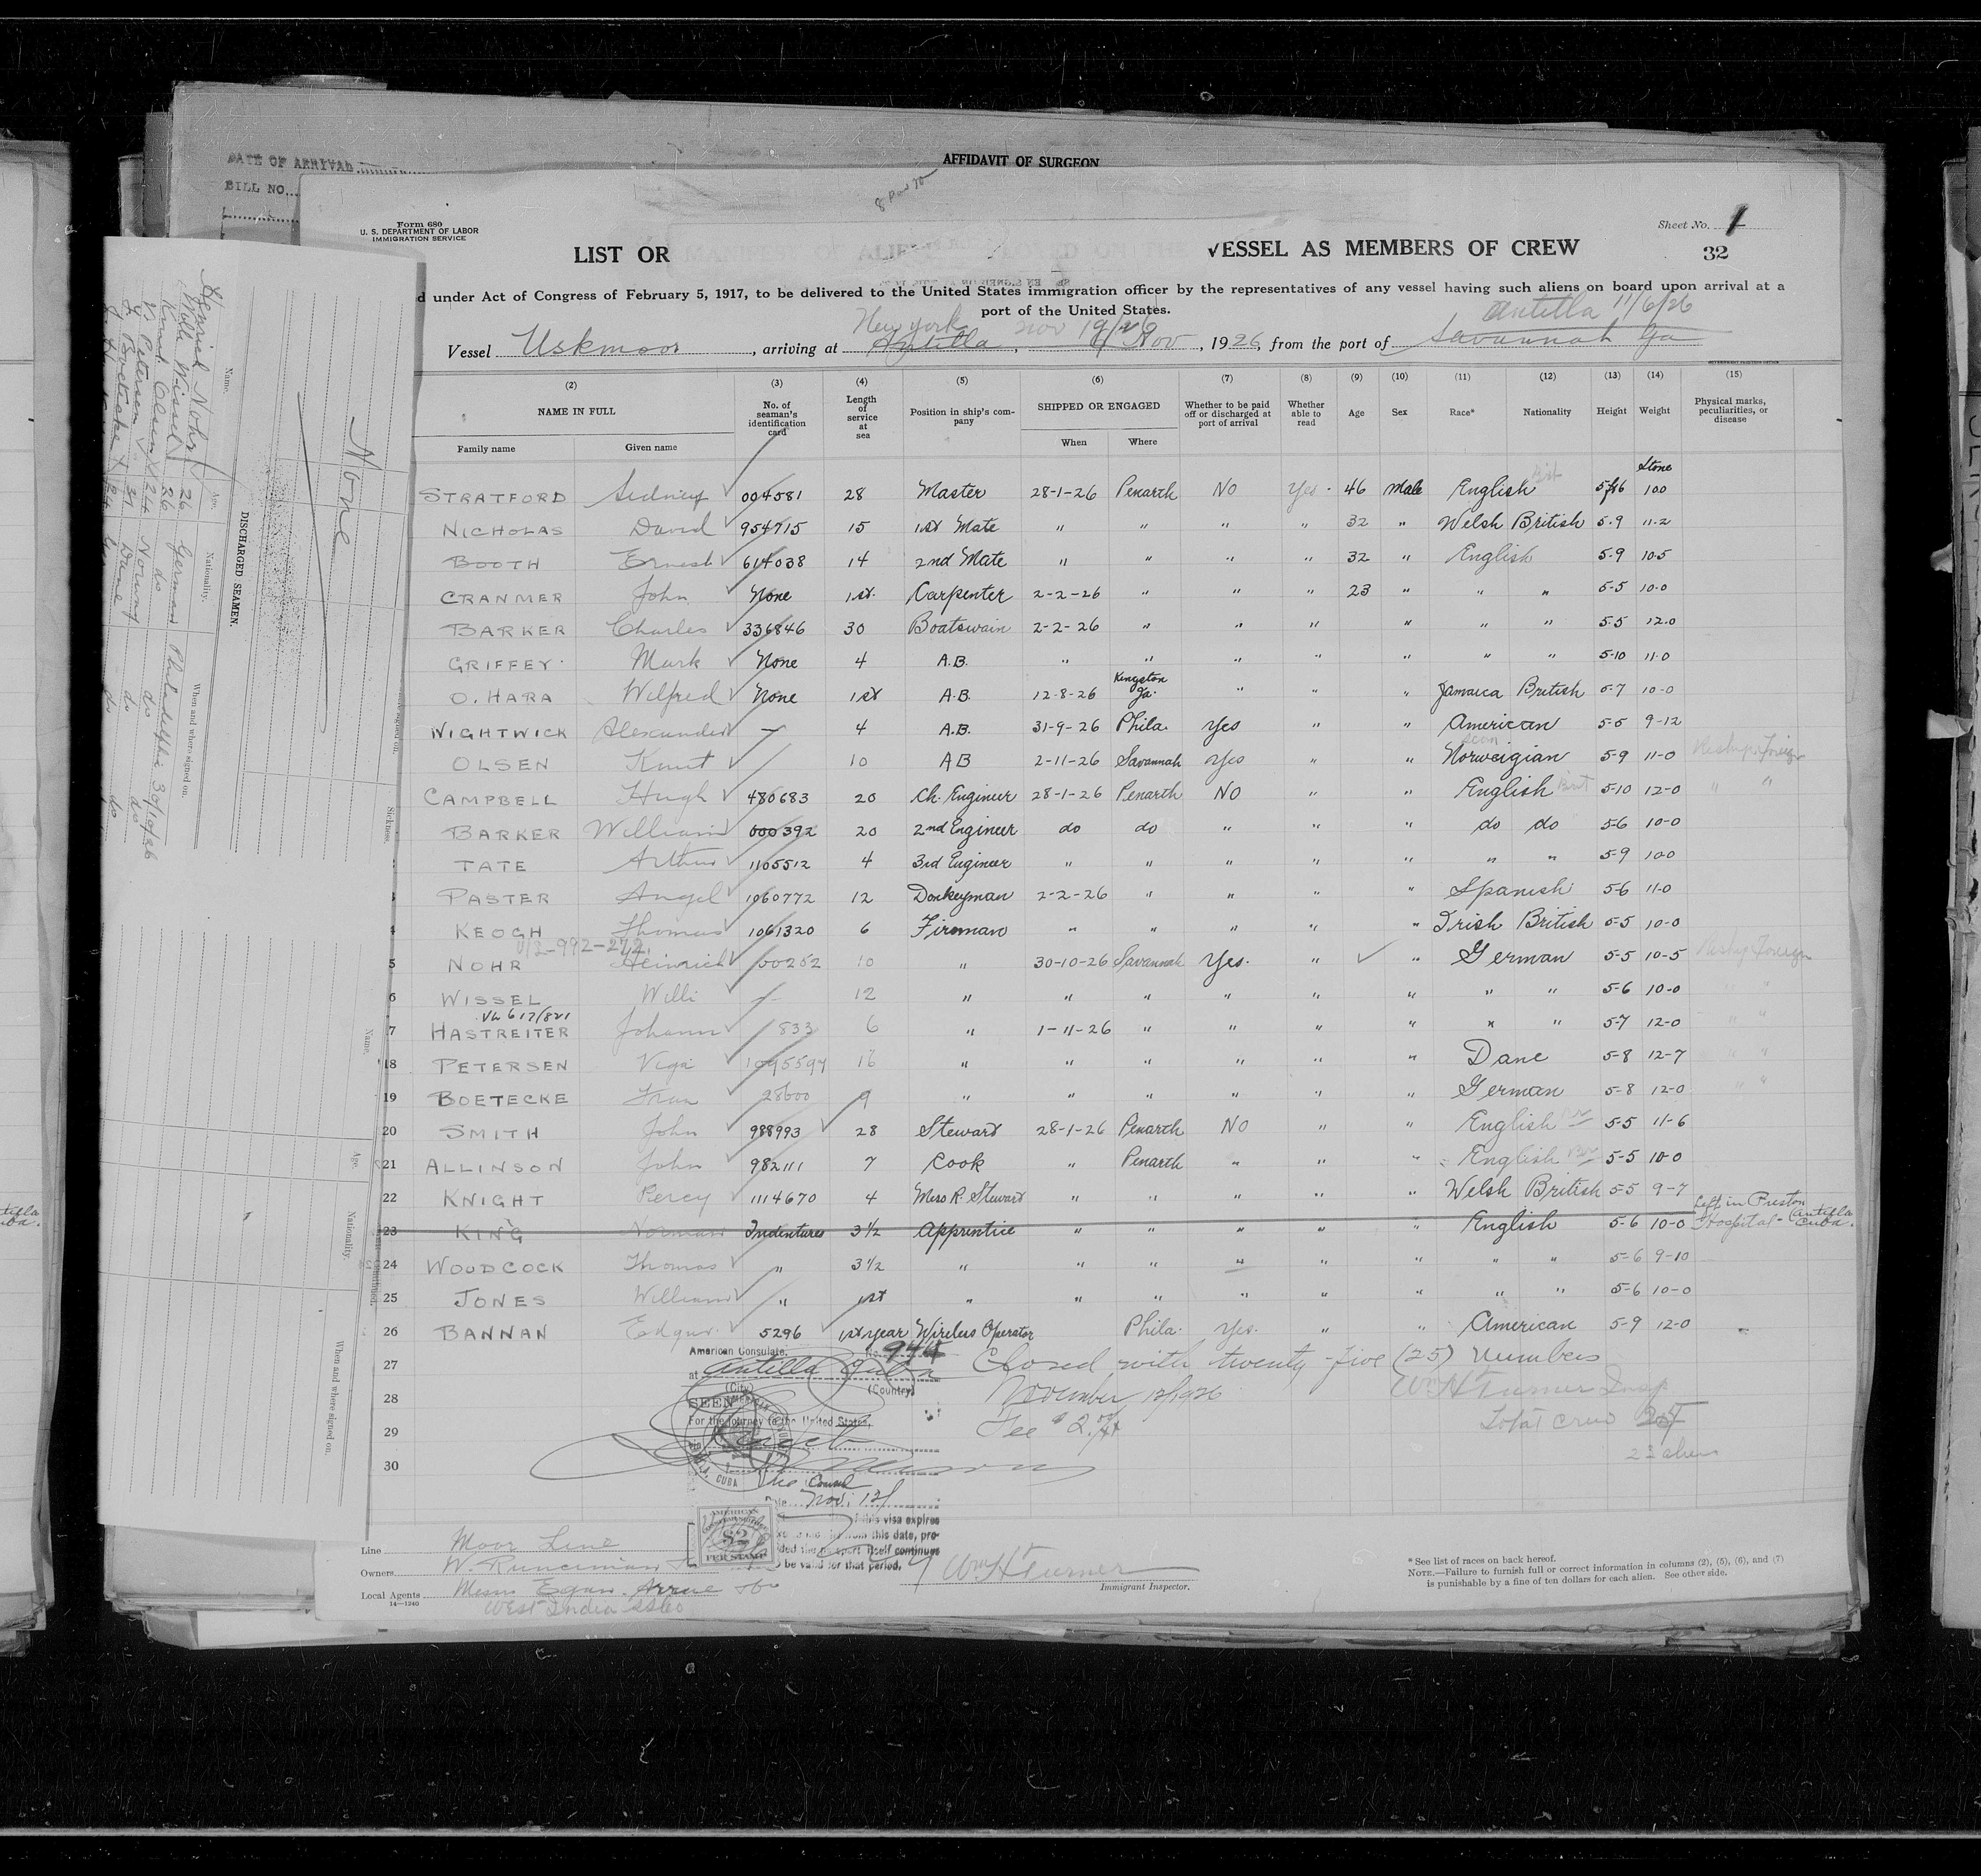 DATE OF ARRIVAL
BILL NO.
AFFIDAVIT OF SURGEON
Form 680
U. S. DEPARTMENT OF LABOR
IMMIGRATION SERVICE
Sheet No. 1
LIST OR VESSEL AS MEMBERS OF CREW 32
d under Act of Congress of February 5, 1917, to be delivered to the United States immigration officer by the representatives of any vessel having such aliens on board upon arrival at a
port of the United States.
New York Nov 19/26 Antilla 11/6/26
Vessel Uskmoor, arriving at Antilla, 6 Nov, 1926, from the port of Savannah Ga
(2) (3) (4) (5) (6) (7) (8) (9) (10) (11) (12) (13) (14) (15)
NAME IN FULL No. of seaman's identification card Length of service at sea Position in ship's company SHIPPED OR ENGAGED Whether to be paid off or discharged at port of arrival Whether able to read Age Sex Race* Nationality Height Weight Physical marks, peculiarities, or disease
Family name Given name When Where
Stone
STRATFORD Sidney 004581 28 Master 28-1-26 Penarth NO Yes 46 Male English 5ft6 10.0
NICHOLAS David 954715 15 1st Mate " " " " 32 " Welsh British 5-9 11-2
BOOTH Ernest 614038 14 2nd Mate " " " " 32 " English 5-9 10-5
CRANMER John None 1st Carpenter 2-2-26 " " " 23 " " " 5-5 10-0
BARKER Charles 336846 30 Boatswain 2-2-26 " " " " " " 5-5 12.0
GRIFFEY Mark None 4 A.B. " " " " " " " 5-10 11-0
O. HARA Wilfred None 1st A.B. 12-8-26 Kingston Ja. " " " Jamaica British 5-7 10-0
NIGHTWICK Alexander — 4 A.B. 31-9-26 Phila. Yes " " American 5-5 9-12
OLSEN Knut 10 AB 2-11-26 Savannah Yes " " Norweigian 5-9 11-0 Reship Foreign
CAMPBELL Hugh 480683 20 Ch. Engineer 28-1-26 Penarth NO " " English Brit 5-10 12-0 " "
BARKER William 000392 20 2nd Engineer do do " " " do do 5-6 10-0
TATE Arthur 1105512 4 3rd Engineer " " " " " " " 5-9 10-0
PASTER Angel 1060772 12 Donkeyman 2-2-26 " " " " Spanish 5-6 11-0
KEOGH Thomas 1061320 6 Fireman " " " " " Irish British 5-5 10-0
5 NOHR Heinrich 00252 10 " 30-10-26 Savannah Yes. " " German 5-5 10-5 Reship Foreign
6 WISSEL Willi — 12 " " " " " " " " 5-6 10-0 " "
7 HASTREITER Johann 833 6 " 1-11-26 " " " " " " 5-7 12-0 " "
18 PETERSEN Viga 1095597 16 " " " " " " Dane 5-8 12-7 " "
19 BOETECKE 28600 9 " " " " " " German 5-8 12-0 " "
20 SMITH John 988993 28 Steward 28-1-26 Penarth NO " " English 5-5 11-6
21 ALLINSON John 982111 7 Cook " Penarth " " " English 5-5 10-0
22 KNIGHT Percy 1114670 4 Mess R. Steward " " " " " Welsh British 5-5 9-7
23 KING Norman Indentures 3½ Apprentice " " " " " English 5-6 10-0 Left in Preston Hospital - Antilla Cuba.
24 WOODCOCK Thomas " 3½ " " " " " " " " 5-6 9-10
25 JONES William " 1st " " " " " " " " 5-6 10-0
26 BANNAN Edgar 5296 1st year Wireless Operator Phila. Yes. " " American 5-9 12-0
27
28
29
30
American Consulate, No. 944
at Antilla Cuba
(City) (Country)
SEEN
For the journey to the United States.
Vice Consul
Date Nov. 12/
of this visa expires
from this date, pro-
ded the passport itself continues
be valid for that period.
Closed with twenty-five (25) numbers
November 12/1926
Fee $2.
Wm H Turner Insp
Total crew 25
23 aliens
Line Moor Line
Owners W. Runciman
Local Agents Messrs Egan. Arrue & Co
14—1240
West India SS Co
Wm H Turner
Immigrant Inspector.
* See list of races on back hereof.
NOTE.—Failure to furnish full or correct information in columns (2), (5), (6), and (7)
is punishable by a fine of ten dollars for each alien. See other side.
None
DISCHARGED SEAMEN.
Name. Age. Nationality. When and where signed on.
Heinrich Nohr 26 German Philadelphia 30/10/26
Willi Wissel 26 do do
Knud Olsen 24 Norway do
V. Petersen 31 Dane do
Sickness.
Name. Age. Nationality. When and where signed on.